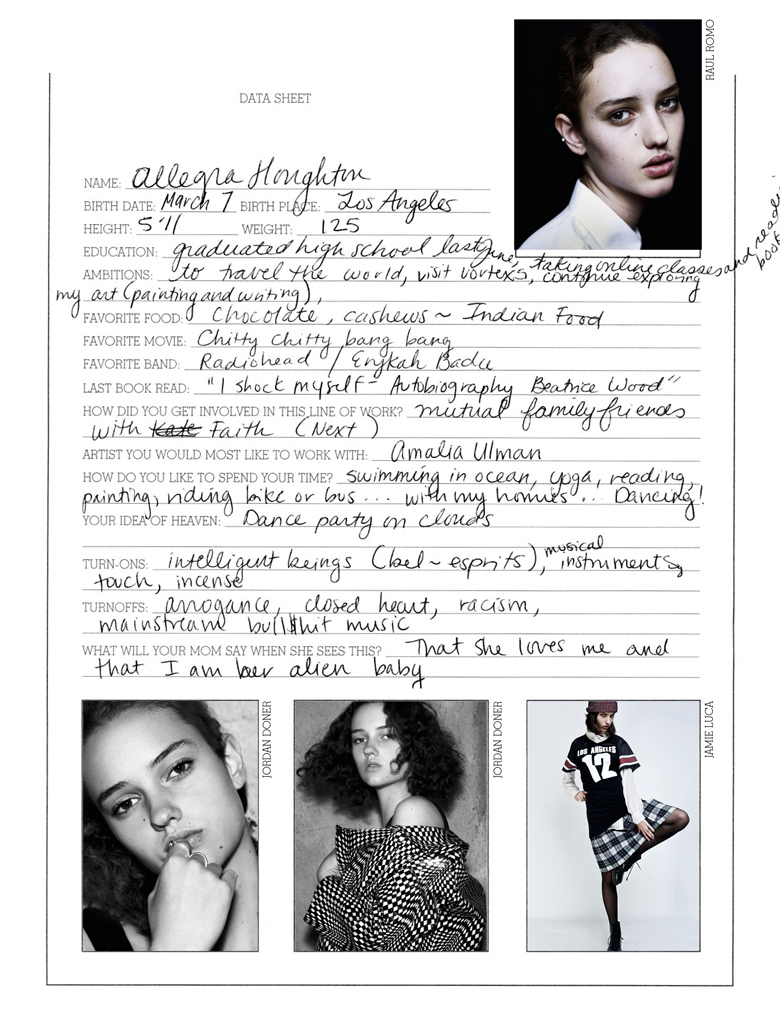 RAUL ROMO
DATA SHEET
NAME: Allegra Houghton
BIRTH DATE: March 7 BIRTH PLACE: Los Angeles
HEIGHT: 5'11 WEIGHT: 125
EDUCATION: graduated high school last June, taking online classes and reading books
AMBITIONS: to travel the world, visit vortexs, continue exploring
my art (painting and writing),
FAVORITE FOOD: Chocolate, cashews ~ Indian Food
FAVORITE MOVIE: Chitty chitty bang bang
FAVORITE BAND: Radiohead / Erykah Badu
LAST BOOK READ: "I shock myself - Autobiography Beatrice Wood"
HOW DID YOU GET INVOLVED IN THIS LINE OF WORK? mutual family friends
with Kate Faith (Next)
ARTIST YOU WOULD MOST LIKE TO WORK WITH: Amalia Ulman
HOW DO YOU LIKE TO SPEND YOUR TIME? swimming in ocean, yoga, reading,
painting, riding bike or bus ... with my homies ... Dancing!
YOUR IDEA OF HEAVEN: Dance party on clouds
TURN-ONS: intelligent beings (bel ~ esprits), musical instruments,
touch, incense
TURNOFFS: arrogance, closed heart, racism,
mainstream bull$hit music
WHAT WILL YOUR MOM SAY WHEN SHE SEES THIS? That she loves me and
that I am her alien baby
JORDAN DONER
JORDAN DONER
LOS ANGELES
12
JAMIE LUCA